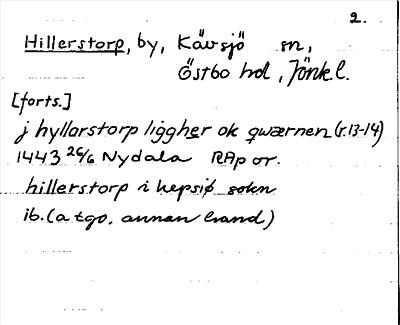 2.
Hillerstorp, by, Kävsjö sn,
Östbo hd, Jönk.l.
[forts.]
j hyllarstorp liggher ok qwærnen (r.13-14)
1443 26/6 Nydala RAp or.
hillerstorp i kepsiø sokn
ib. (a tgo, annan hand)